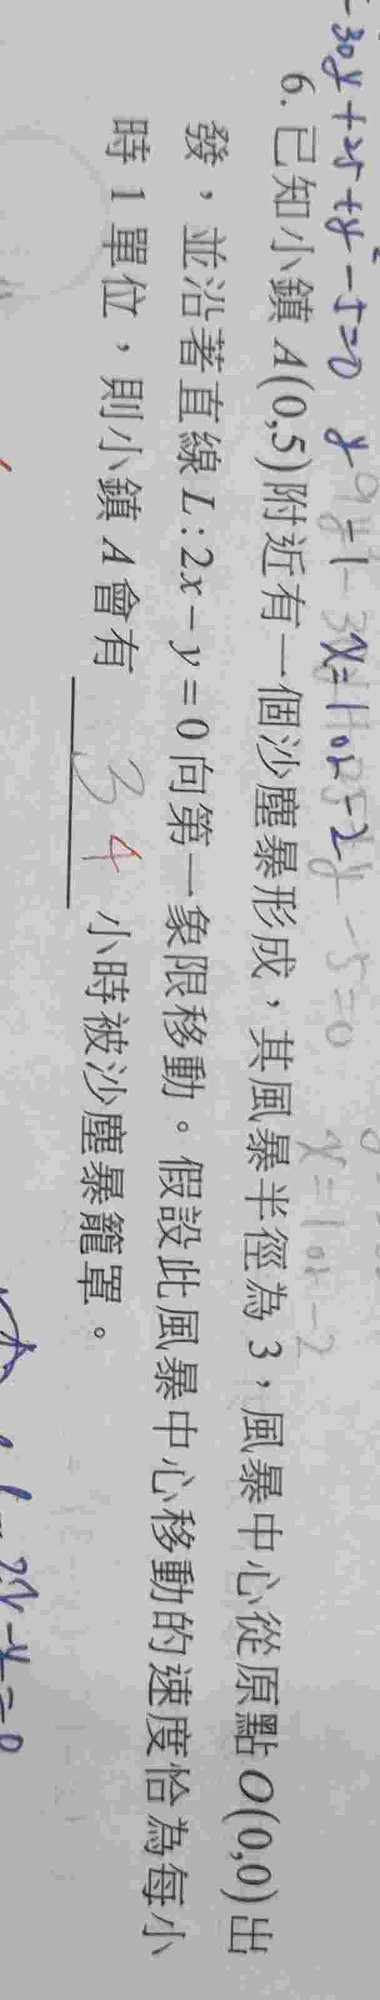 -30y+25+y²-5=0 y=1 x=1or-2
x=1or-2
6. 已知小鎮A(0,5)附近有一個沙塵暴形成，其風暴半徑為3，風暴中心從原點O(0,0)出
發，並沿著直線L:2x-y=0向第一象限移動。假設此風暴中心移動的速度恰為每小
時1單位，則小鎮A會有 3 4 小時被沙塵暴籠罩。
2x-y=0